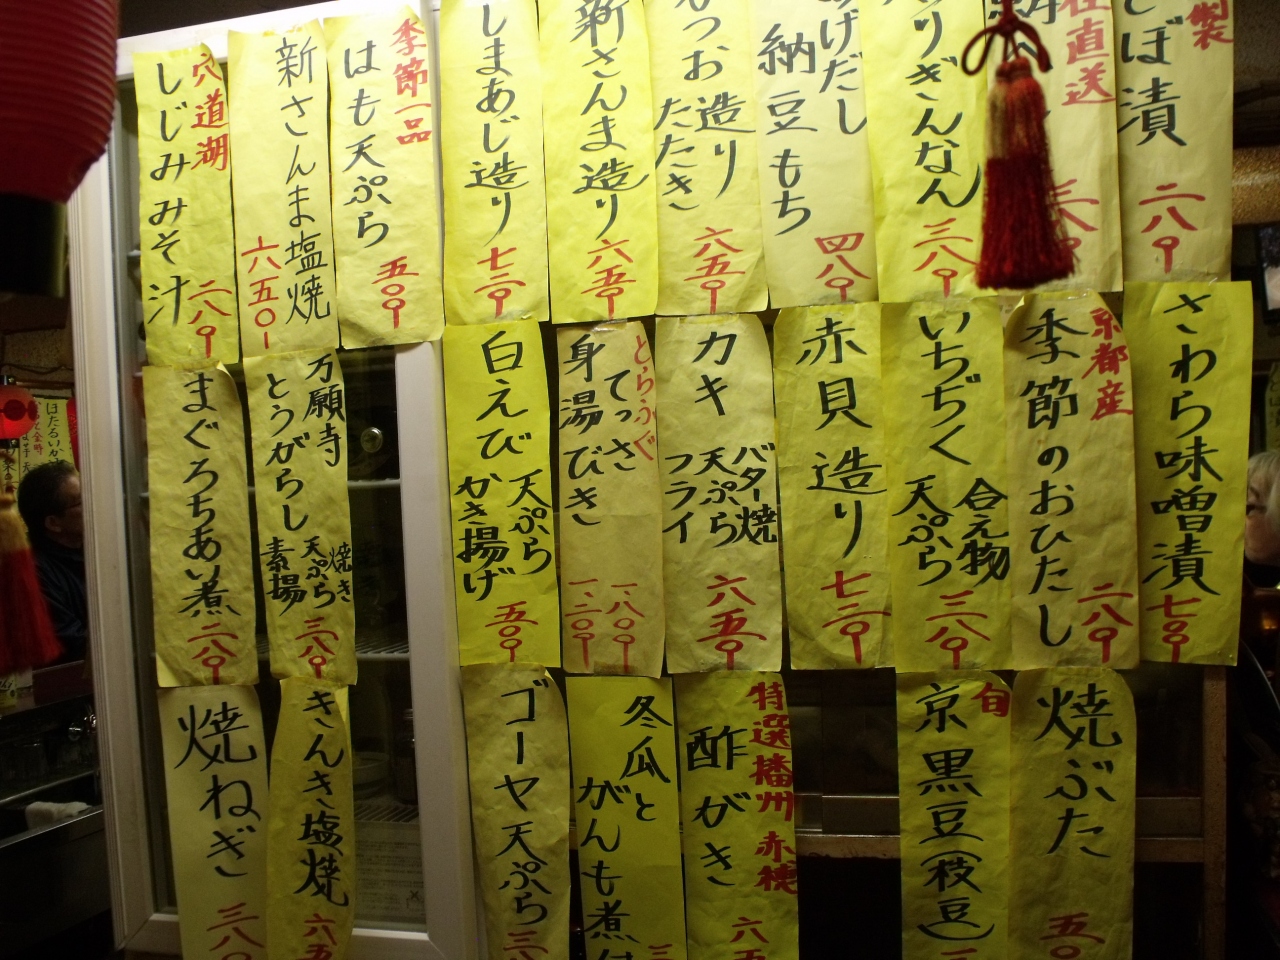 製
ぼ漬
二八〇
直送
りぎんなん
三八〇
げだし
納豆もち
四八〇
つお造り
たたき
六五〇
新さんま造り
六五〇
しまあじ造り
七二〇
季節一品
はも天ぷら
五〇〇
新さんま塩焼
六五〇
穴道湖
しじみみそ汁
二八〇
さわら味噌漬
七〇〇
京都産
季節のおひたし
二八〇
いちぢく
合え物
天ぷら
三八〇
赤貝造り
七二〇
カキ
バター焼
天ぷら
フライ
六五〇
とらふぐ
てっさ
一、八〇〇
身湯びき
一、二〇〇
白えび
天ぷら
かき揚げ
五〇〇
万願寺
とうがらし
焼き
天ぷら
素揚
三八〇
まぐろちあい煮
二八〇
焼ぶた
五〇
京黒豆(枝豆)
特選播州赤穂
酢がき
六五
冬瓜と
がんも煮
ゴーヤ天ぷら
三八
きんき塩焼
六五
焼ねぎ
三八〇